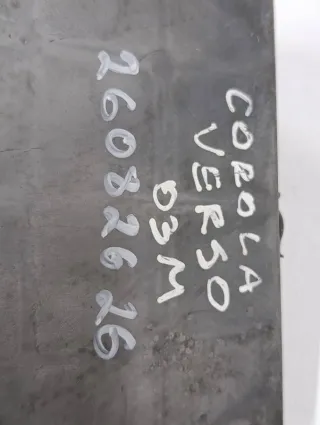 COROLA
VERSO
03M
26082626